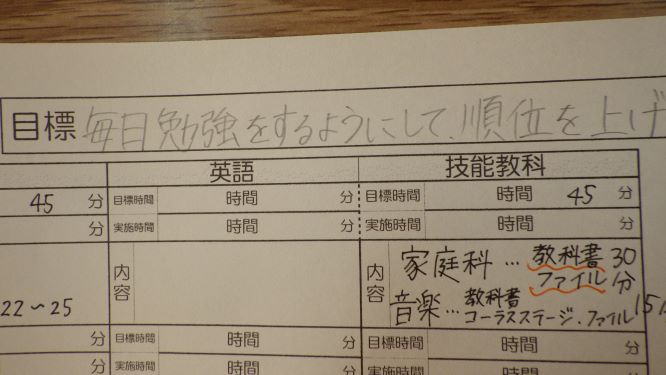 目標 毎日勉強をするようにして、順位を上げ
英語 技能教科
45 分 目標時間 時間 分 目標時間 時間 45 分
分 実施時間 時間 分 実施時間 時間 分
22～25 内容 内容 家庭科…教科書 30分
ファイル
音楽…教科書
コーラスステージ・ファイル 15
分 目標時間 時間 分 目標時間 時間 分
分 実施時間 時間 分 実施時間 時間